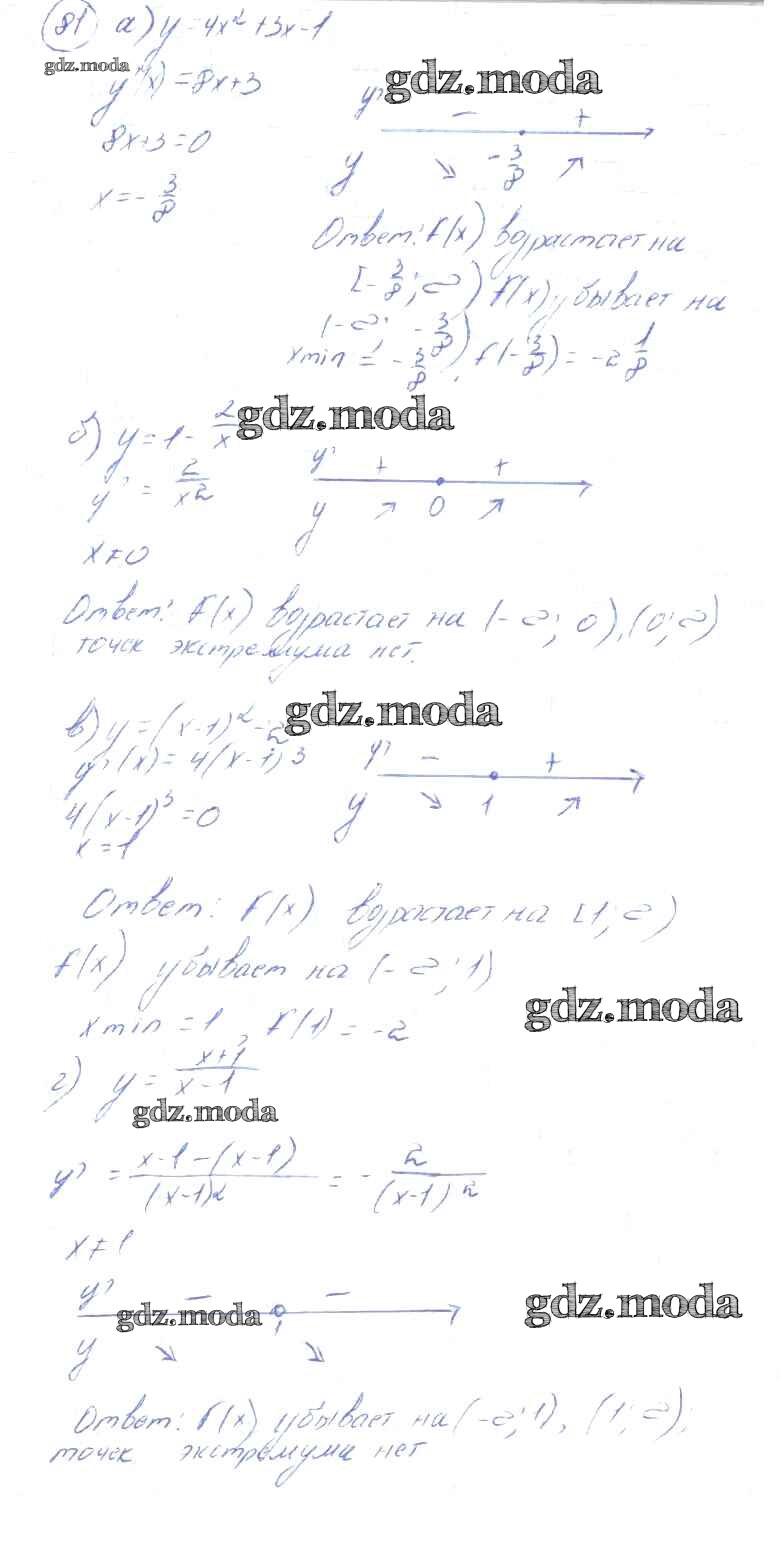 81 а) y=4x²+3x-1
gdz.moda
y'(x)=8x+3
gdz.moda
8x+3=0
x=-3/8
y' - +
y ↘ -3/8 ↗
Ответ: f(x) возрастает на
[-3/8; ∞) f(x) убывает на
(-∞; -3/8)
xmin = -3/8, f(-3/8) = -2 1/8
б) y=1-2/x
gdz.moda
y' = 2/x²
y' + +
y ↗ 0 ↗
x≠0
Ответ: f(x) возрастает на (-∞; 0), (0; ∞)
точек экстремума нет.
в) y=(x-1)²-2
gdz.moda
y'(x)=4(x-1)3
4(x-1)³=0
x=1
y' - +
y ↘ 1 ↗
Ответ: f(x) возрастает на [1; ∞)
f(x) убывает на (-∞; 1)
gdz.moda
xmin = 1, f(1) = -2
г) y = x+1/x-1
gdz.moda
y' = x-1-(x-1)/(x-1)² = -2/(x-1)²
x≠1
y' - -
gdz.moda
gdz.moda
y ↘ 1 ↘
Ответ: f(x) убывает на (-∞; 1), (1; ∞);
точек экстремума нет